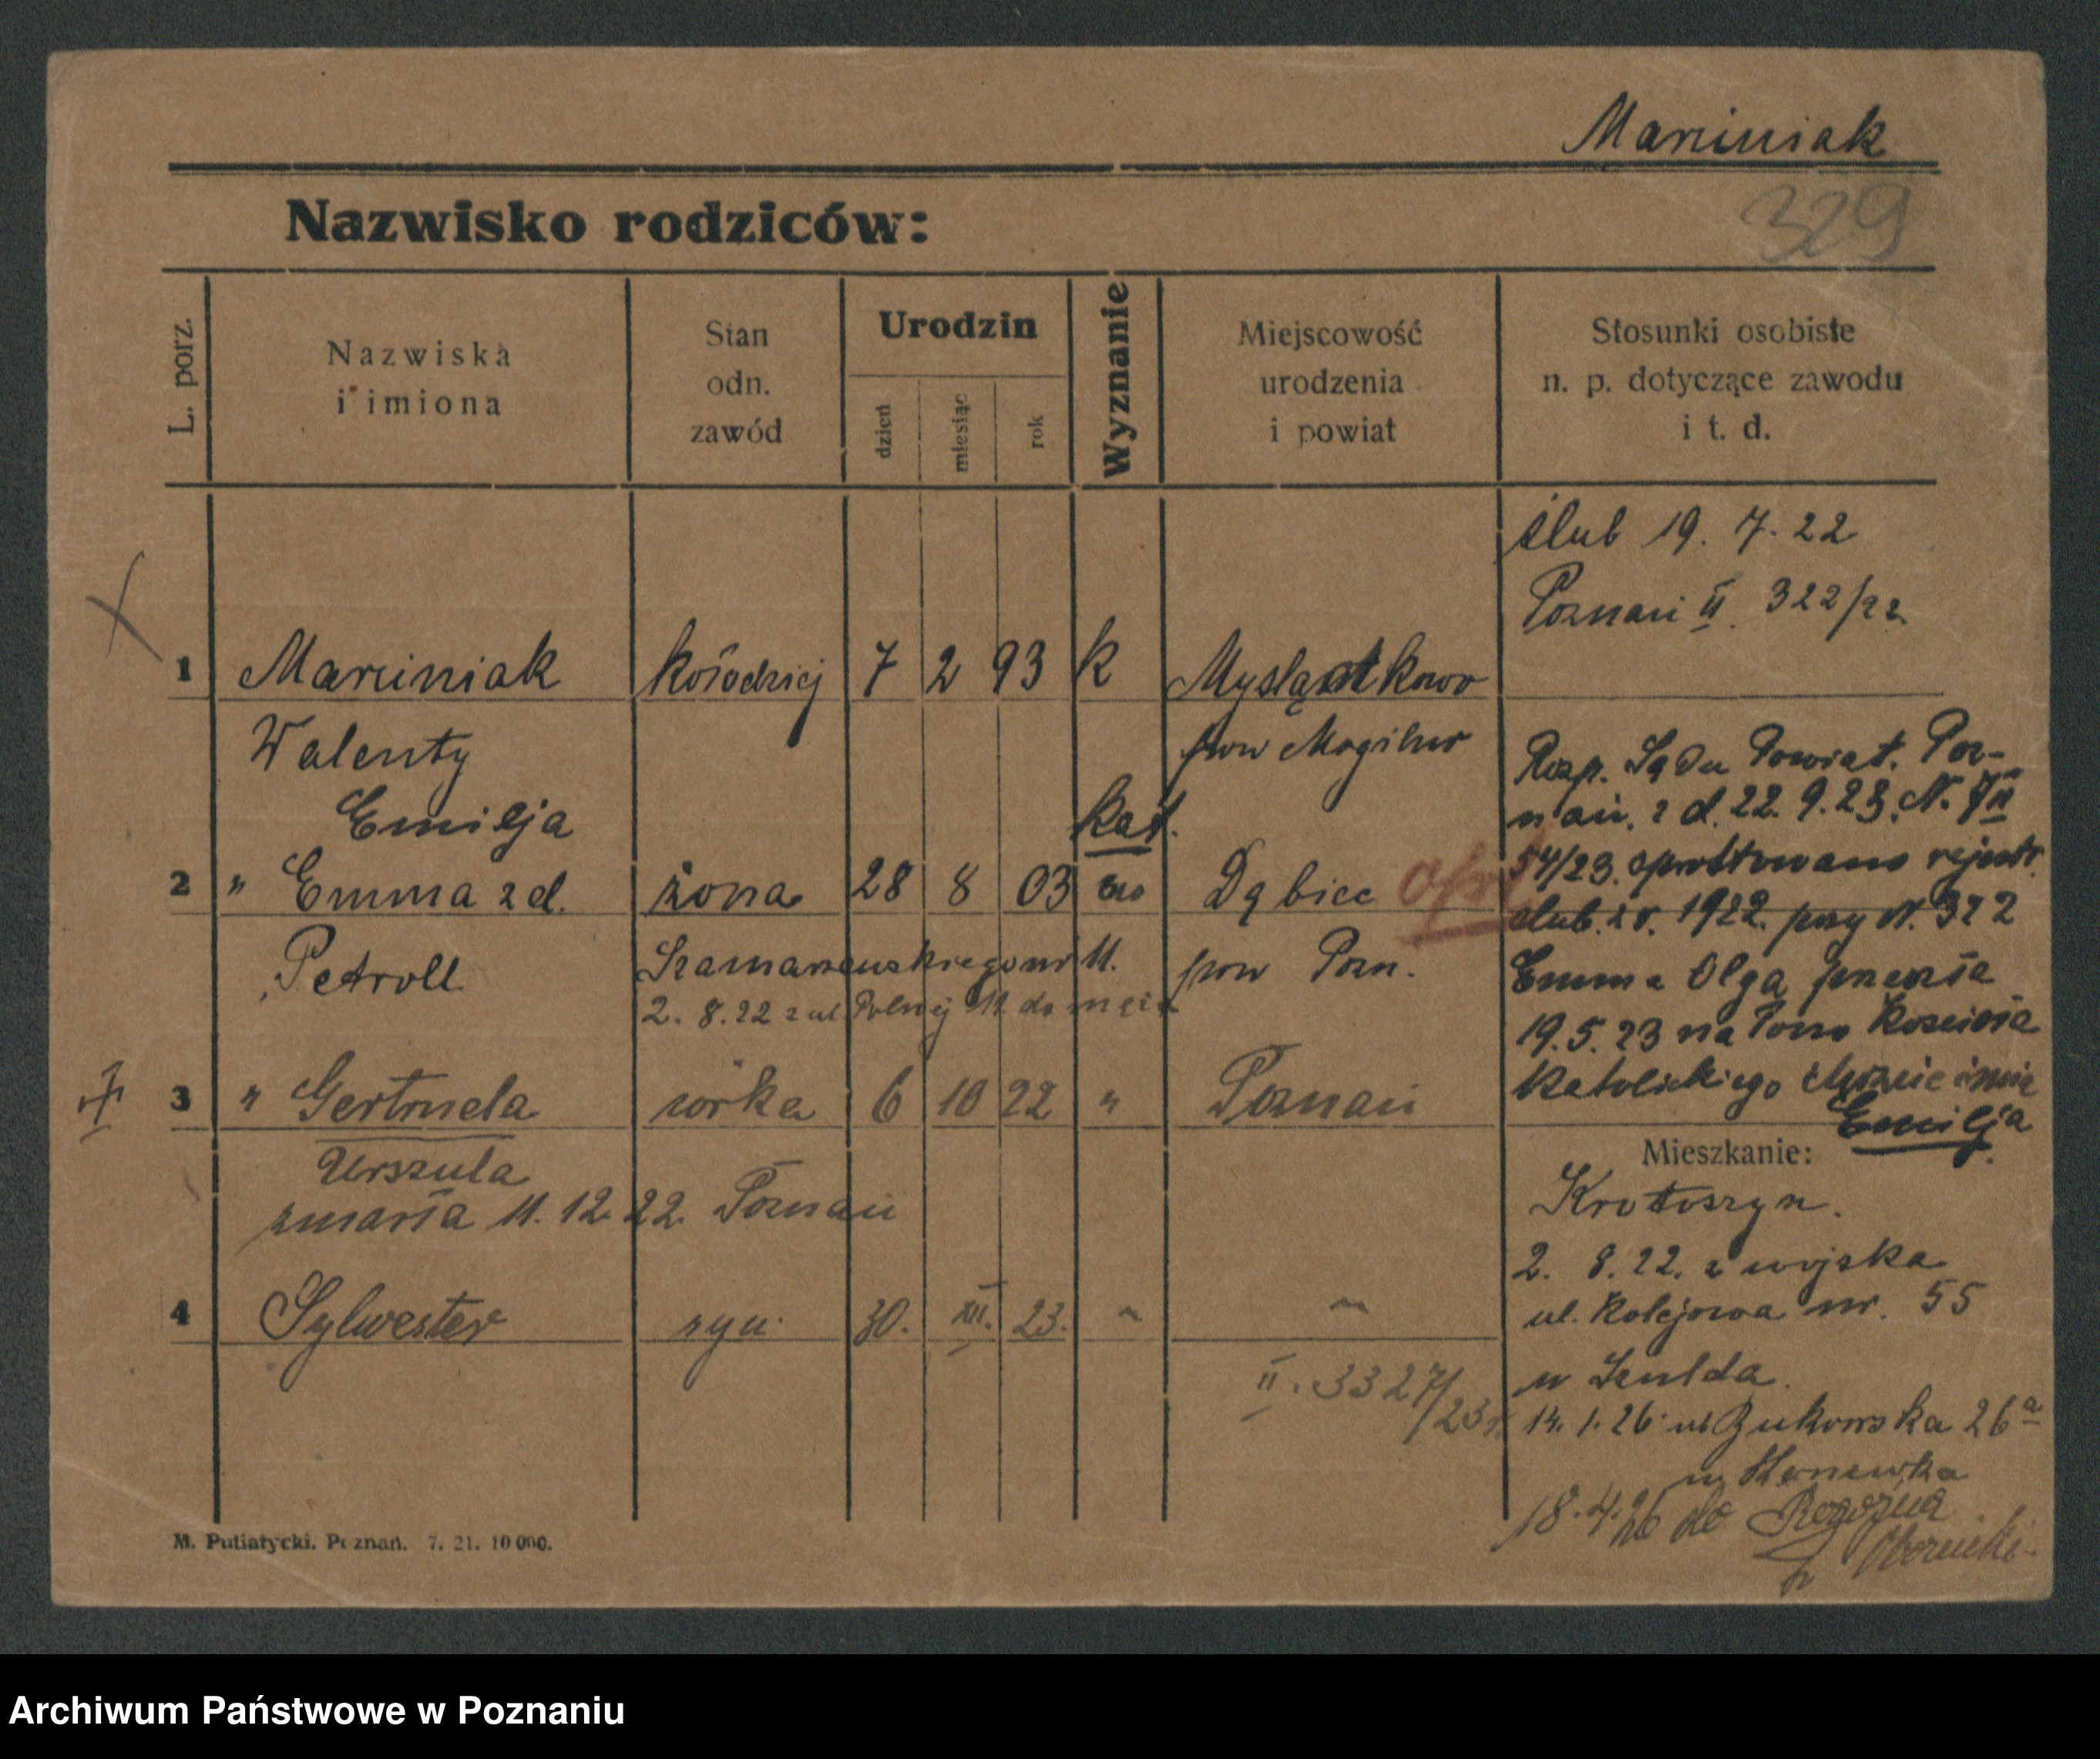 Marciniak
Nazwisko rodziców:
329
L. porz.
Nazwiska
i imiona
Stan
odn.
zawód
Urodzin
dzień
miesiąc
rok
Wyznanie
Miejscowość
urodzenia
i powiat
Stosunki osobiste
n. p. dotyczące zawodu
i t. d.
ślub 19. 7. 22
Poznań II. 322/22
1 Marciniak kołodziej 7 2 93 k Myslątkowo
Walenty pow Mogilno
Emilja kat.
2 " Emma z d. żona 28 8 03 Dąbiec
Petroll Szamarzewskiego nr 11. pow Pozn.
2. 8. 22 z ul. Polnej 11. do męża
Rozp. Sądu Powiat. Poz-
nań. z d. 22. 9. 23. N.
54/23. sprostowano rejestr.
ślub. z r. 1922. przy N. 322
Emma Olga przeszła
19. 5. 23 na łono kościoła
katolickiego imię
Emilja
3 " Gertruda córka 6 10 22 " Poznań
Urszula
zmarła 11. 12. 22. Poznań
4 Sylwester syn 30. XII. 23. " "
II. 3327/23
Mieszkanie:
Krotoszyn.
2. 8. 22. z wojska
ul. Kolejowa nr. 55
u Szulda.
14. 1. 26 ul Bukowska 26a
18. 4. 26 do Rogoźna
M. Putiatycki. Poznań. 7. 21. 10 000.
Archiwum Państwowe w Poznaniu